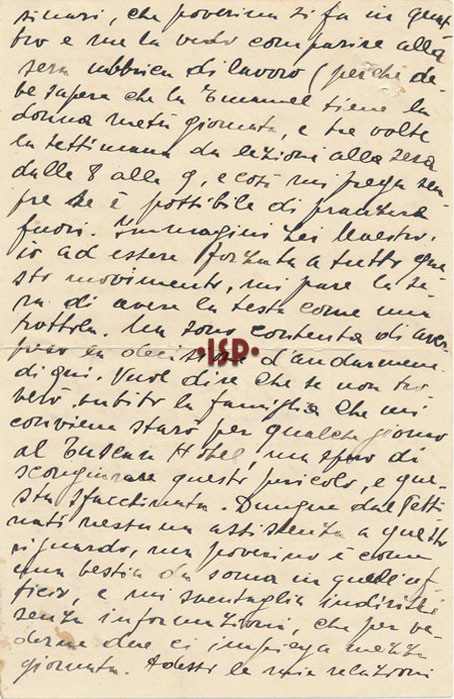 sinari, che poverina si fa in quat-
tro e me la vedo comparire alla
sera ubbriaca di lavoro (perché de-
be sapere che la Emanuel tiene la
donna metà giornata, e tre volte
la settimana da lezioni alla sera
dalle 8 alle 9, e così mi prega sem-
pre se è possibile di pranzare
fuori. Immagini Lei Maestro,
io ad essere forzata a tutto que-
sto movimento, mi pare la se-
ra di avere la testa come una
trottola. Ma sono contenta di aver
preso la decisione d'andarmene
di qui. Vuol dire che se non tro-
verò subito la famiglia che mi
conviene starò per qualche giorno
al Tuscan Hotel, ma spero di
scongiurare questo pericolo, e que-
sta sfacchinata. Dunque dal Petti-
nati nessuna assistenza a questo
riguardo, ma poverino è come
una bestia da soma in quell'uf-
ficio, e mi sventaglia indirizzi
senza informazioni, che per ve-
derne due ci impiega mezza
giornata. Adesso le mie relazioni
·ISP·